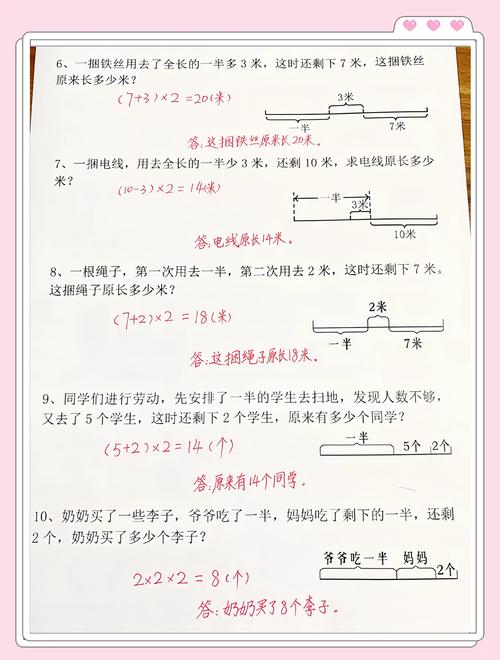 6、一捆铁丝用去了全长的一半多 3 米，这时还剩下 7 米，这捆铁丝
原来长多少米？
(7+3)×2=20(米)
3米
一半
7米
答:这捆铁丝原来长20米。
7、一捆电线，用去全长的一半少 3 米，还剩 10 米，求电线原长多少
米？
(10-3)×2=14(米)
一半
3米
10米
答:电线原长14米。
8、一根绳子，第一次用去一半，第二次用去 2 米，这时还剩下 7 米。
这捆绳子原长多少米？
(7+2)×2=18(米)
2米
一半
7米
答:这捆绳子原长18米。
9、同学们进行劳动，先安排了一半的学生去扫地，发现人数不够，
又去了 5 个学生，这时还剩下 2 个学生，原来有多少个同学？
(5+2)×2=14(个)
一半
5个
2个
答:原来有14个同学。
10、奶奶买了一些李子，爷爷吃了一半，妈妈吃了剩下的一半，还剩
2 个，奶奶买了多少个李子？
爷爷吃一半 妈妈
2个
2×2×2=8(个)
答:奶奶买了8个李子。